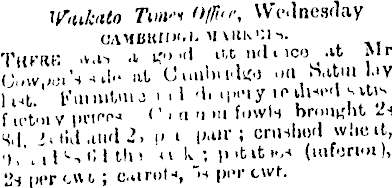 Waikato Times Office, Wednesday
CAMBRIDGE MARKETS.
THERE was a good attendance at Mr
Cowper's sale at Cambridge on Saturday
last. Furniture and drapery realised satis
factory prices. Common fowls brought 2s
8d, 2s 6d and 2s per pair ; crushed wheat,
the sack ; potatoes (inferior),
2s per cwt ; carrots, 5s per cwt.